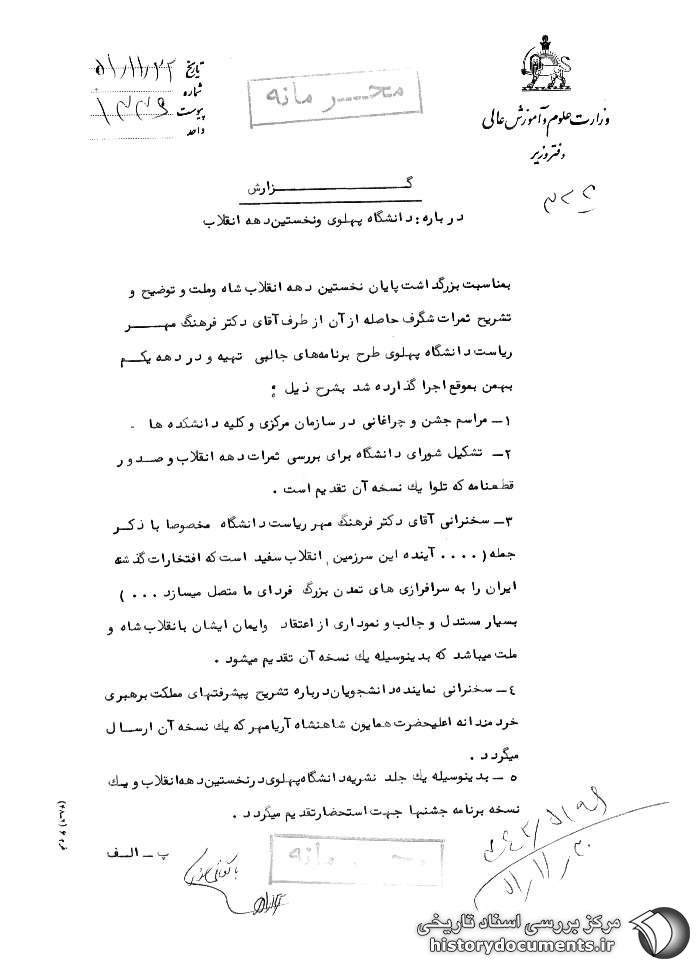 وزارت علوم و آموزش عالی
دفتر وزیر
تاریخ ۵۱/۱۱/۲۲
شماره
پیوست
واحد
محـــرمانه
گــــــــــــزارش
درباره: دانشگاه پهلوی ونخستین دهه انقلاب
بمناسبت بزرگداشت پایان نخستین دهه انقلاب شاه وملت و توضیح و
تشریح ثمرات شگرف حاصله ازآن از طرف آقای دکتر فرهنگ مهـــر
ریاست دانشگاه پهلوی طرح برنامه‌های جالبی تهیه و در دهه یکـم
بهمن بموقع اجرا گذارده شد بشرح ذیل :
۱ــ مراسم جشن و چراغانی در سازمان مرکزی و کلیه دانشکده ها .
۲ــ تشکیل شورای دانشگاه برای بررسی ثمرات دهه انقلاب و صـدور
قطعنامه که تلوا یك نسخه آن تقدیم است .
۳ــ سخنرانی آقای دکتر فرهنگ مهر ریاست دانشگاه مخصوصا با ذکـر
جمله ( .... آینده این سرزمین انقلاب سفید است که افتخارات گذشته
ایران را به سرافرازی های تمدن بزرگ فردای ما متصل میسازد ... )
بسیار مستدل و جالب و نموداری از اعتقاد وایمان ایشان بانقلاب شاه و
ملت میباشد که بدینوسیله یك نسخه آن تقدیم میشود .
٤ــ سخنرانی نماینده دانشجویان درباره تشریح پیشرفتهای مملکت برهبری
خردمندانه اعلیحضرت همایون شاهنشاه آریامهر که یك نسخه آن ارسـال
میگردد .
۵ ــ بدینوسیله یك جلد نشریه دانشگاه پهلوی درنخستین دهه انقلاب و یـك
نسخه برنامه جشنها جهت استحضار تقدیم میگردد .
پ ــ الـف
محـــرمانه
مرکز بررسی اسناد تاریخی
historydocuments.ir